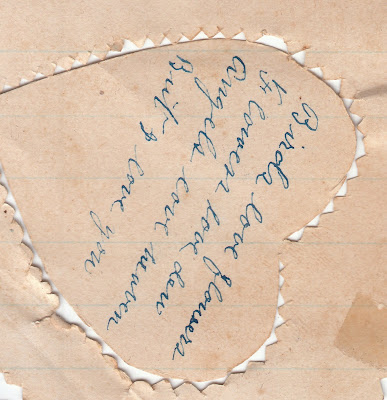 Birds love flowers
Flowers love dew
Angels love heaven
But I love you